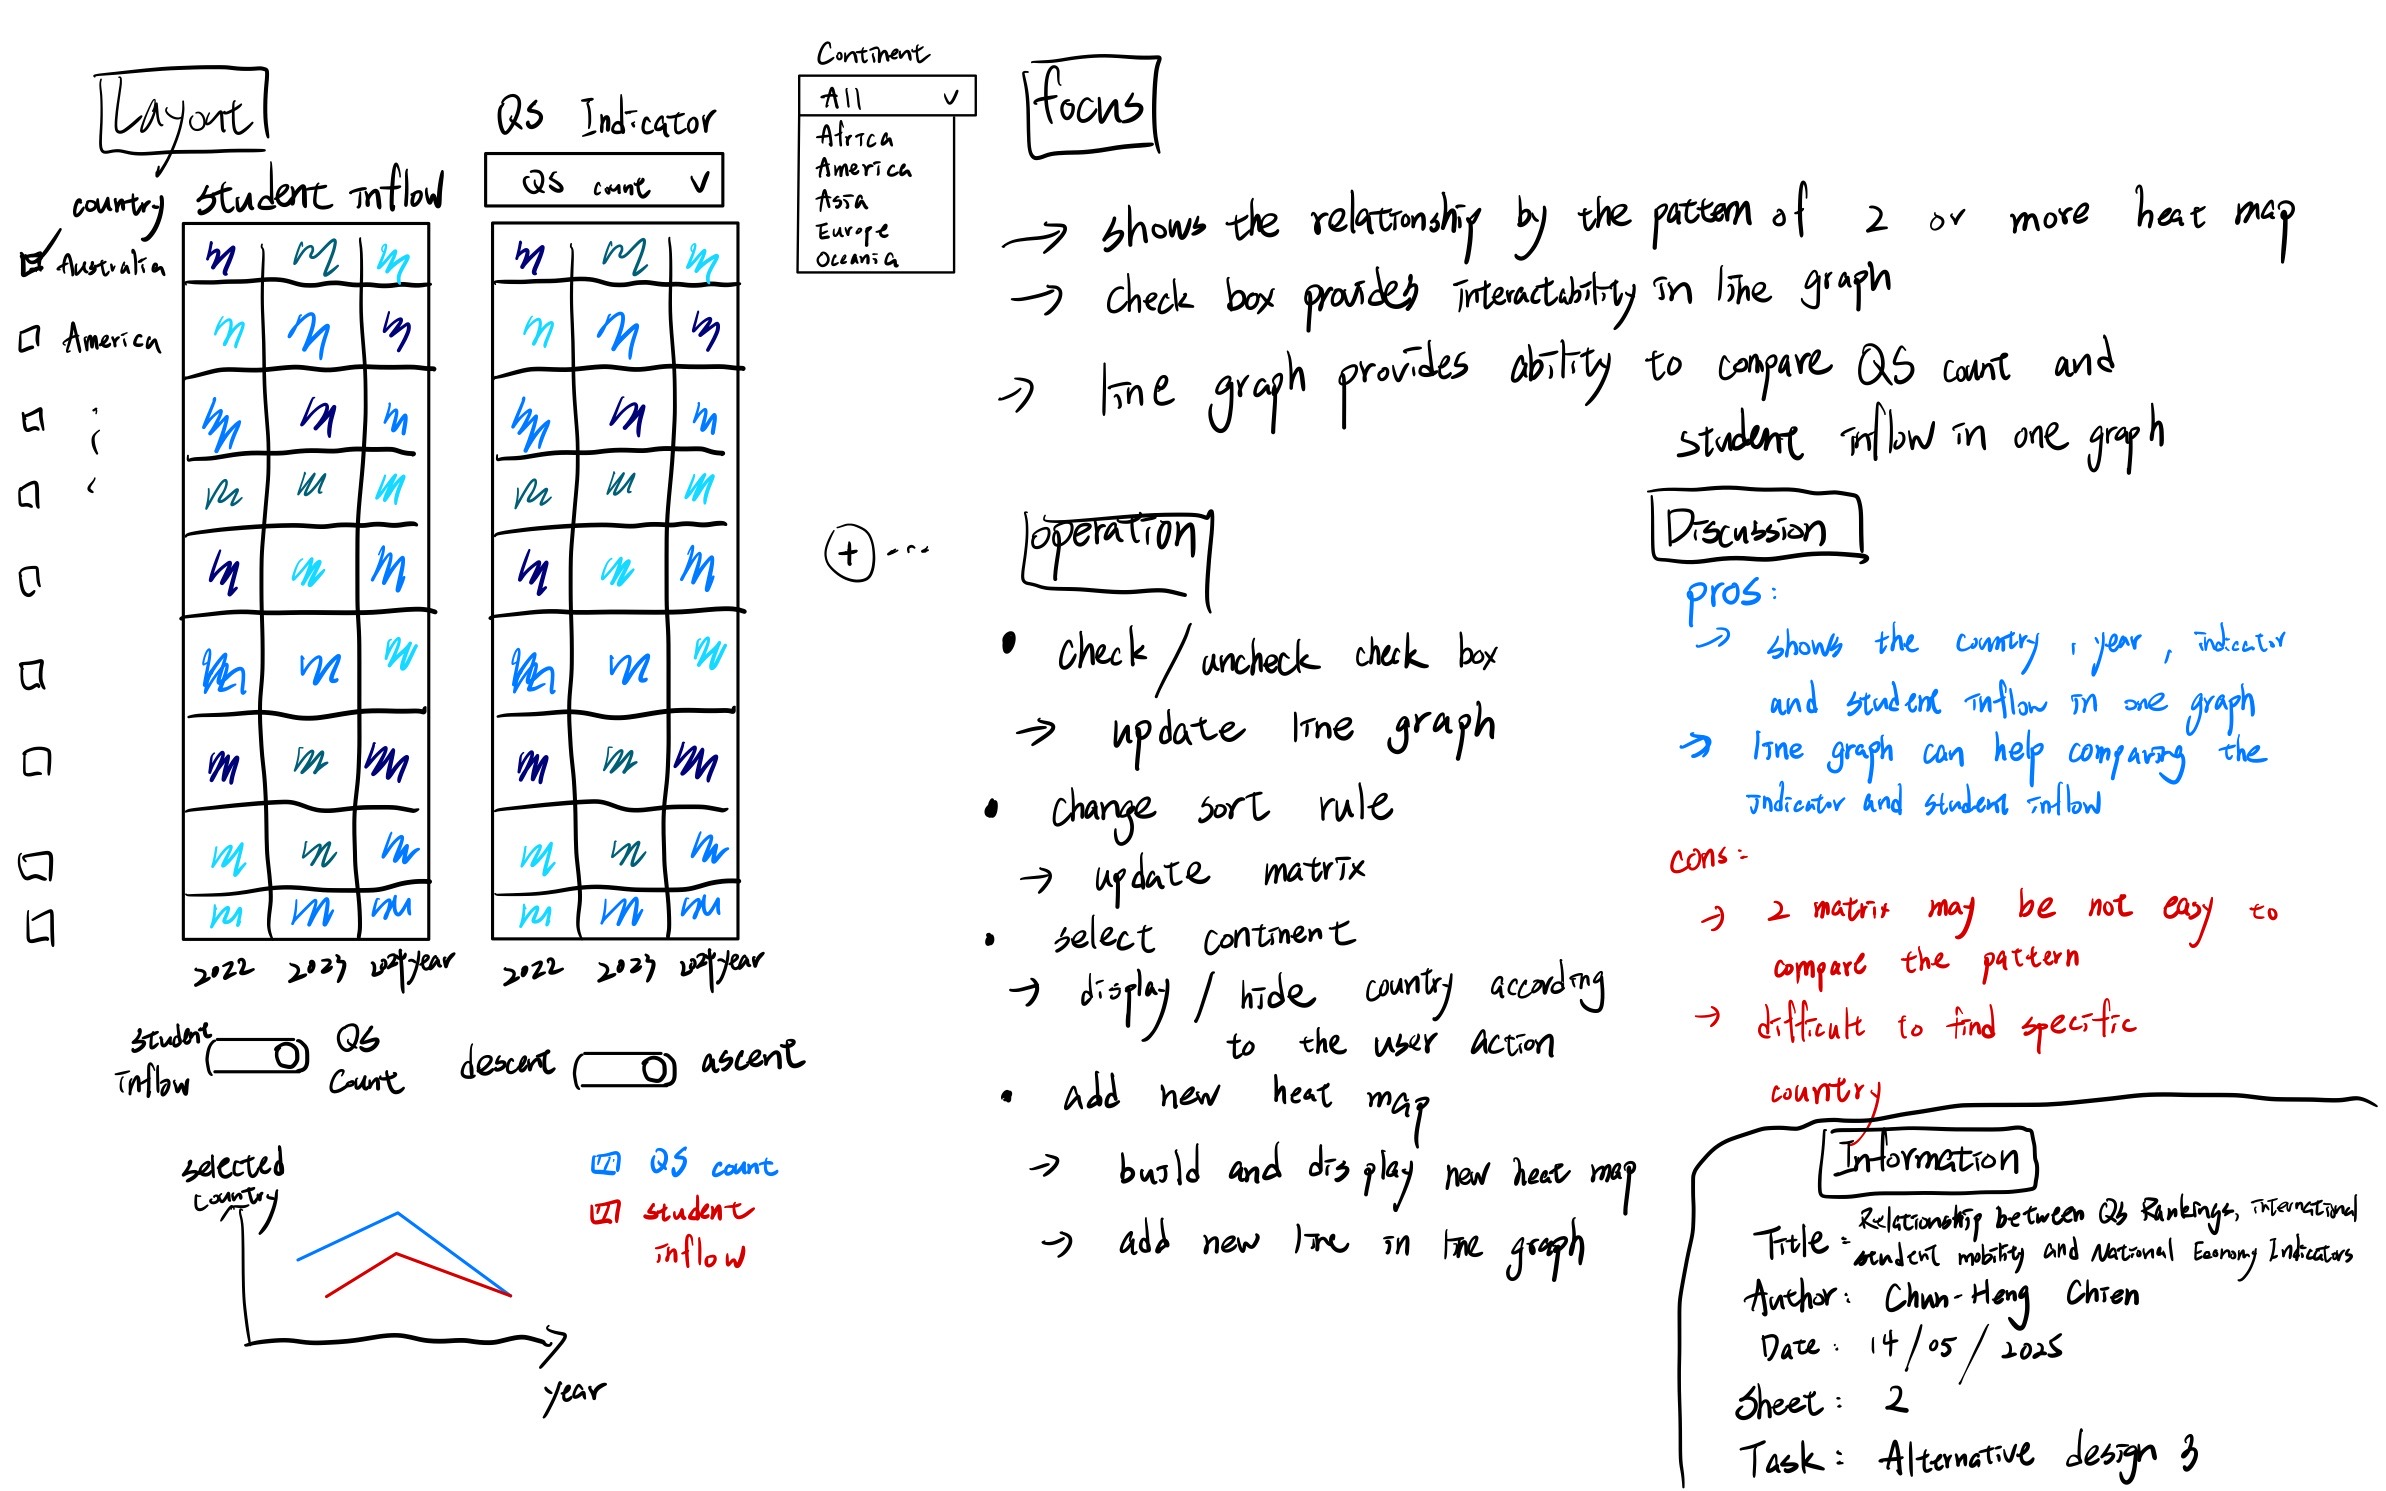 Layout
country
student inflow
QS Indicator
QS count
Continent
All
Africa
America
Asia
Europe
Oceania
Australia
America
2022 2023 2024 year
2022 2023 2024 year
student
inflow
QS
count
descent
ascent
selected
country
year
QS count
student
inflow
+ ...
focus
→ shows the relationship by the pattern of 2 or more heat map
→ check box provides interactability in line graph
→ line graph provides ability to compare QS count and
student inflow in one graph
operation
• check / uncheck check box
→ update line graph
• change sort rule
→ update matrix
• select continent
→ display / hide country according
to the user action
• add new heat map
→ build and display new heat map
→ add new line in line graph
Discussion
pros:
→ shows the country, year, indicator
and student inflow in one graph
→ line graph can help comparing the
indicator and student inflow
cons:
→ 2 matrix may be not easy to
compare the pattern
→ difficult to find specific
country
Information
Title: Relationship between QS Rankings, international
student mobility and National Economy Indicators
Author: Chun-Heng Chien
Date: 14/05/2025
Sheet: 2
Task: Alternative design 3